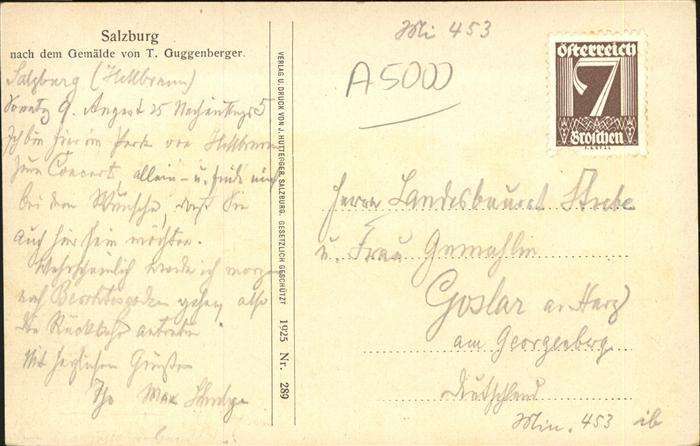 Salzburg
nach dem Gemälde von T. Guggenberger.
Salzburg (Hellbrunn)
Sonntag 9. August 25 Nachmittags 5
Ich bin hier im Parke von Hellbrunn
zum Concert allein - u. finde mich
bei dem Wunsche, daß Sie
auch hier sein möchten.
Wahrscheinlich werde ich morgen
nach Berchtesgaden gehen, also
die Rückkehr antreten
Mit herzlichen Grüßen
Ihr Max
VERLAG U. DRUCK VON J. HUTTEGGER, SALZBURG. GESETZLICH GESCHÜTZT 1925 Nr. 289
Mi 453
A5000
Österreich
7
Groschen
Herrn Landesbaurat
u. Frau Gemahlin
Goslar a. Harz
am Georgenberg
Deutschland
Min. 453